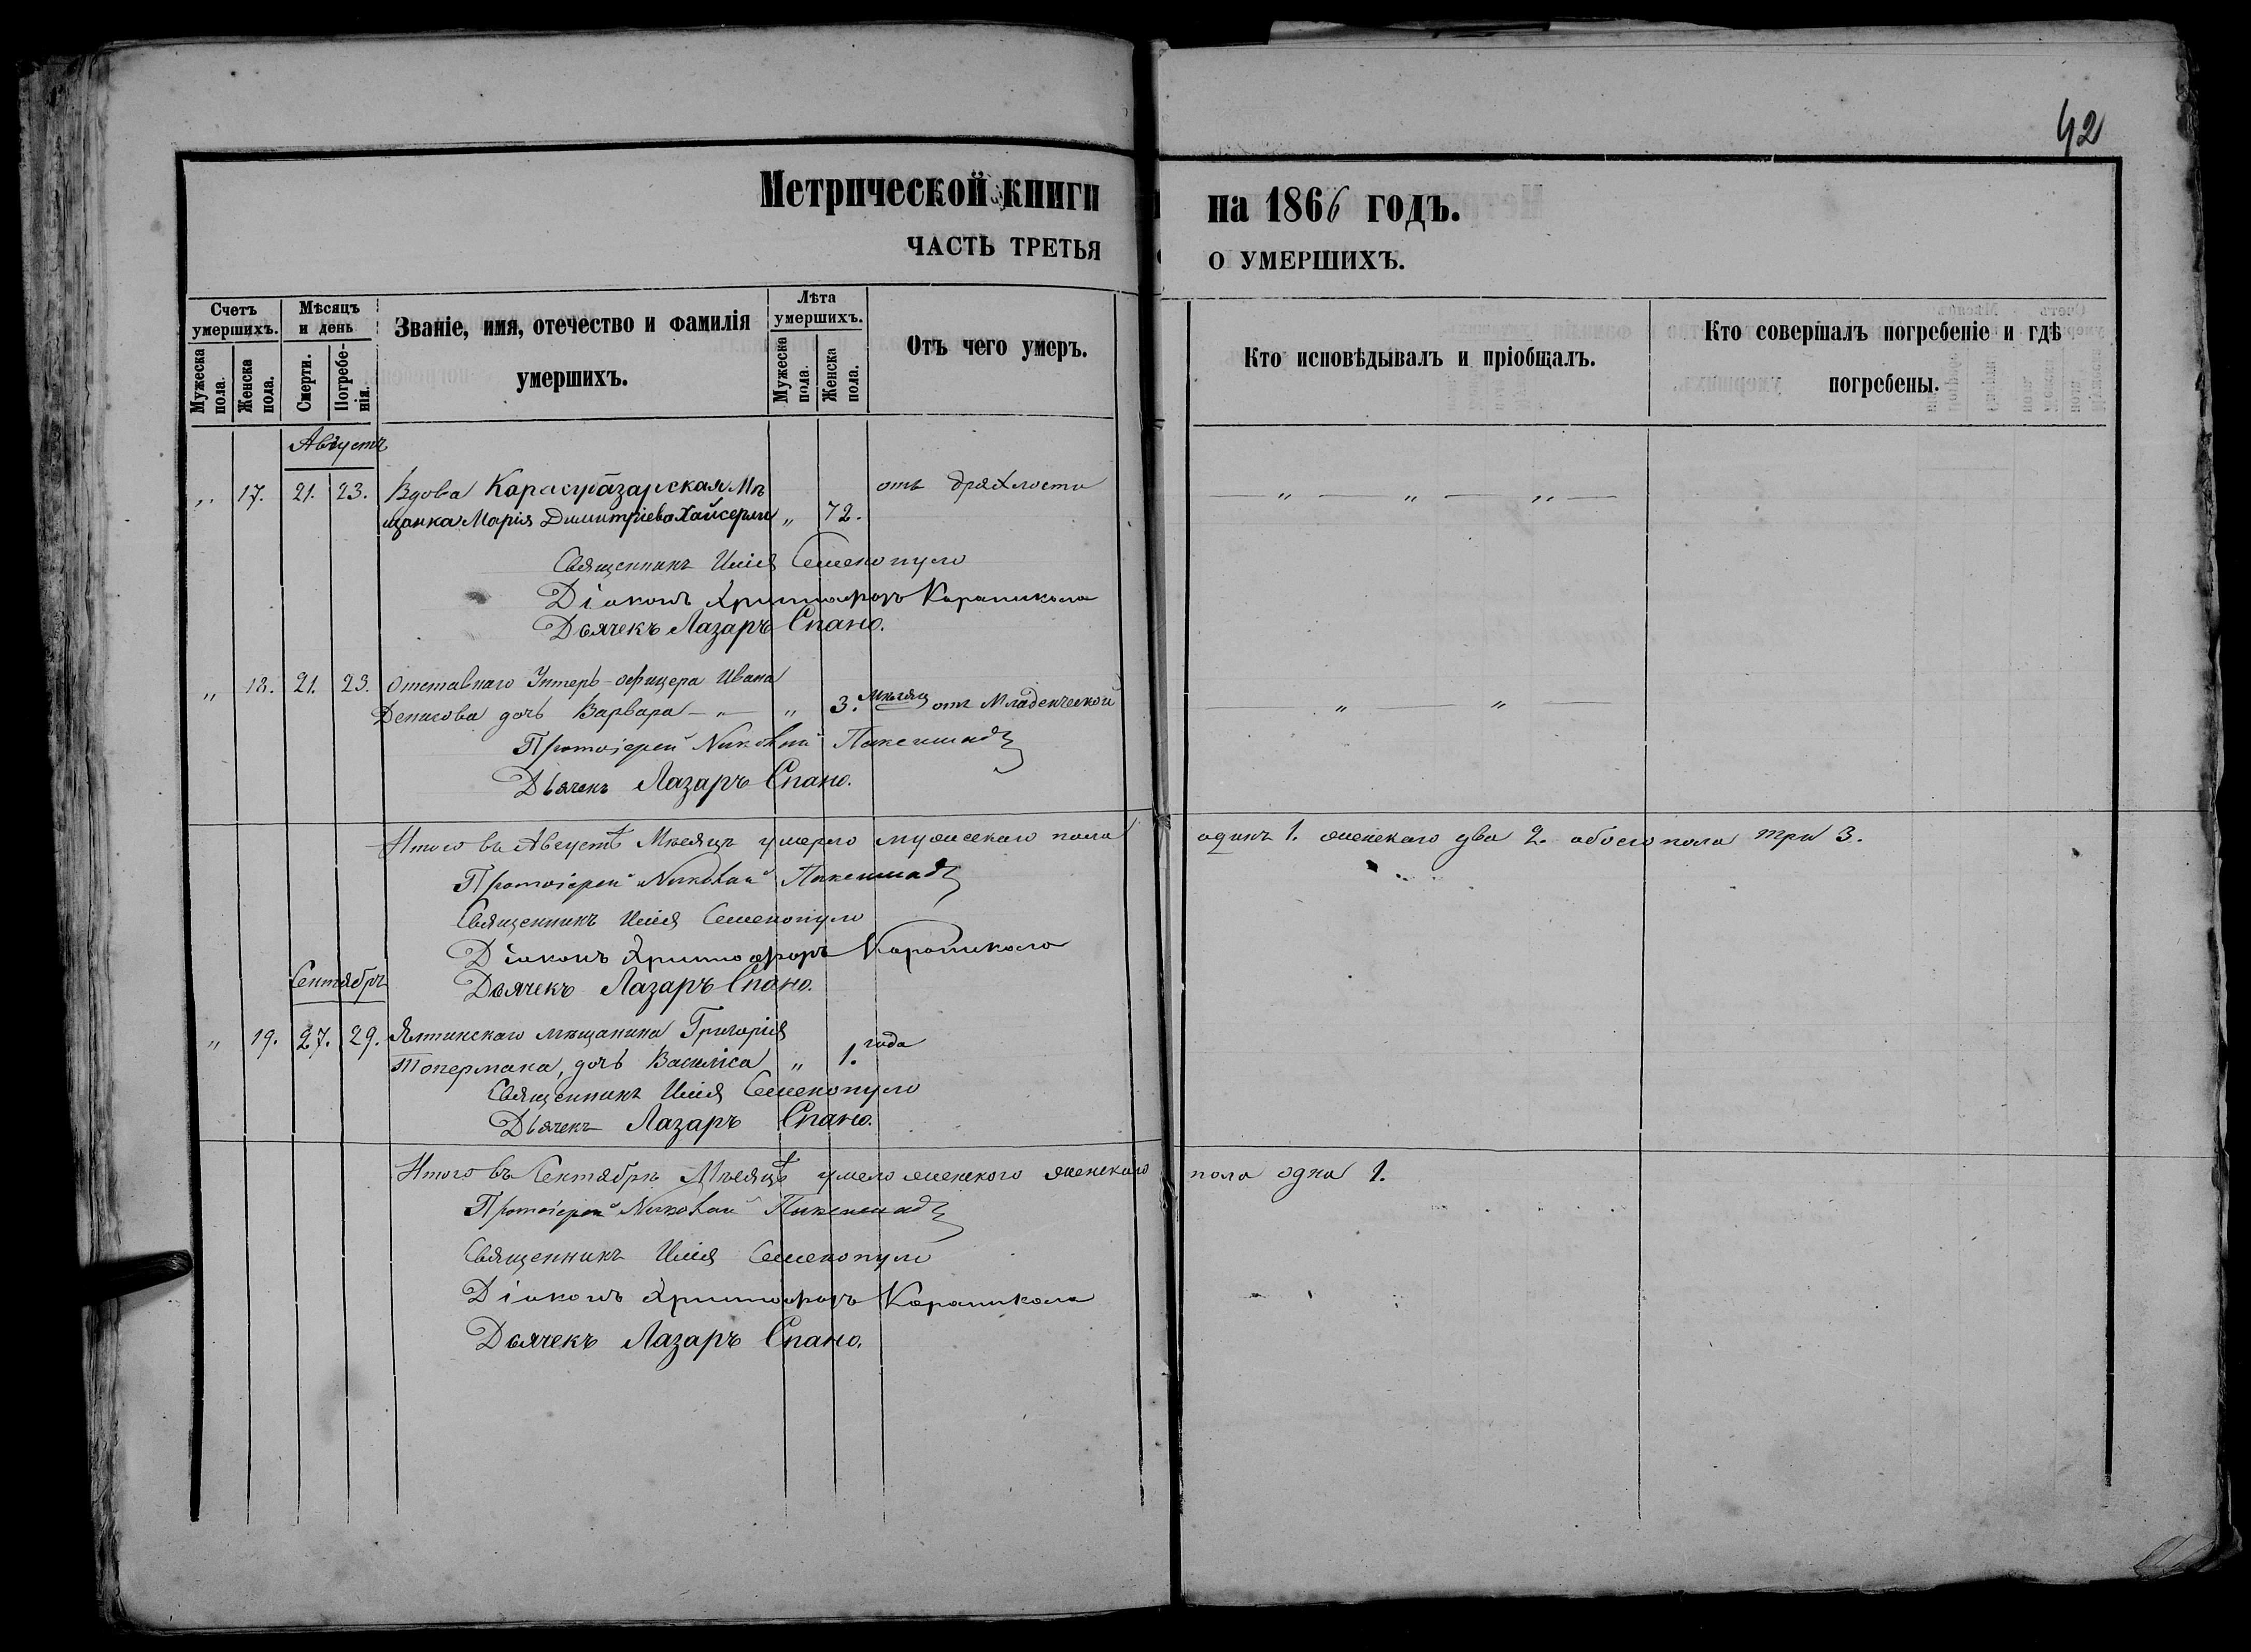 42
Метрической книги на 1866 годъ.
ЧАСТЬ ТРЕТЬЯ О УМЕРШИХЪ.
Счетъ умершихъ.
Мужеска пола.
Женска пола.
Мѣсяцъ и день
Смерти.
Погребенія.
Званіе, имя, отечество и фамилія умершихъ.
Лѣта умершихъ.
Мужеска пола.
Женска пола.
Отъ чего умеръ.
Кто исповѣдывалъ и пріобщалъ.
Кто совершалъ погребеніе и гдѣ погребены.
Августъ
„ 17. 21. 23. Вдова Карасубазарская Мѣ отъ дряхлости „ — „ — „ —
щанка Марія Димитріева Хайсерли „ 72.
Священникъ Илія Семенопуло
Діаконъ Христофоръ Караникола
Дьячекъ Лазаръ Спано.
„ 18. 21. 23. Отставнаго Унтеръ-офицера Ивана
Денисова дочь Варвара — „ — „ 3. Мѣсяц отъ Младенческой — „ — „ —
Протоіерей Николай
Дьячекъ Лазаръ Спано.
Итого въ Августѣ Мѣсяцѣ умерло мужескаго пола одинъ 1. женскаго два 2. обоего пола три 3.
Протоіерей Николай
Священникъ Илія Семенопуло
Діаконъ Христофоръ Караникола
Дьячекъ Лазаръ Спано.
Сентябрь
„ 19. 27. 29. Ялтинскаго мѣщанина Григорія
Топермака, дочь Василиса „ 1. года
Священникъ Илія Семенопуло
Дьячекъ Лазаръ Спано.
Итого въ Сентябрѣ Мѣсяцѣ умело женского женскаго пола одна 1.
Протоіерей Николай
Священникъ Илія Семенопуло
Діаконъ Христофоръ Караникола
Дьячекъ Лазаръ Спано.